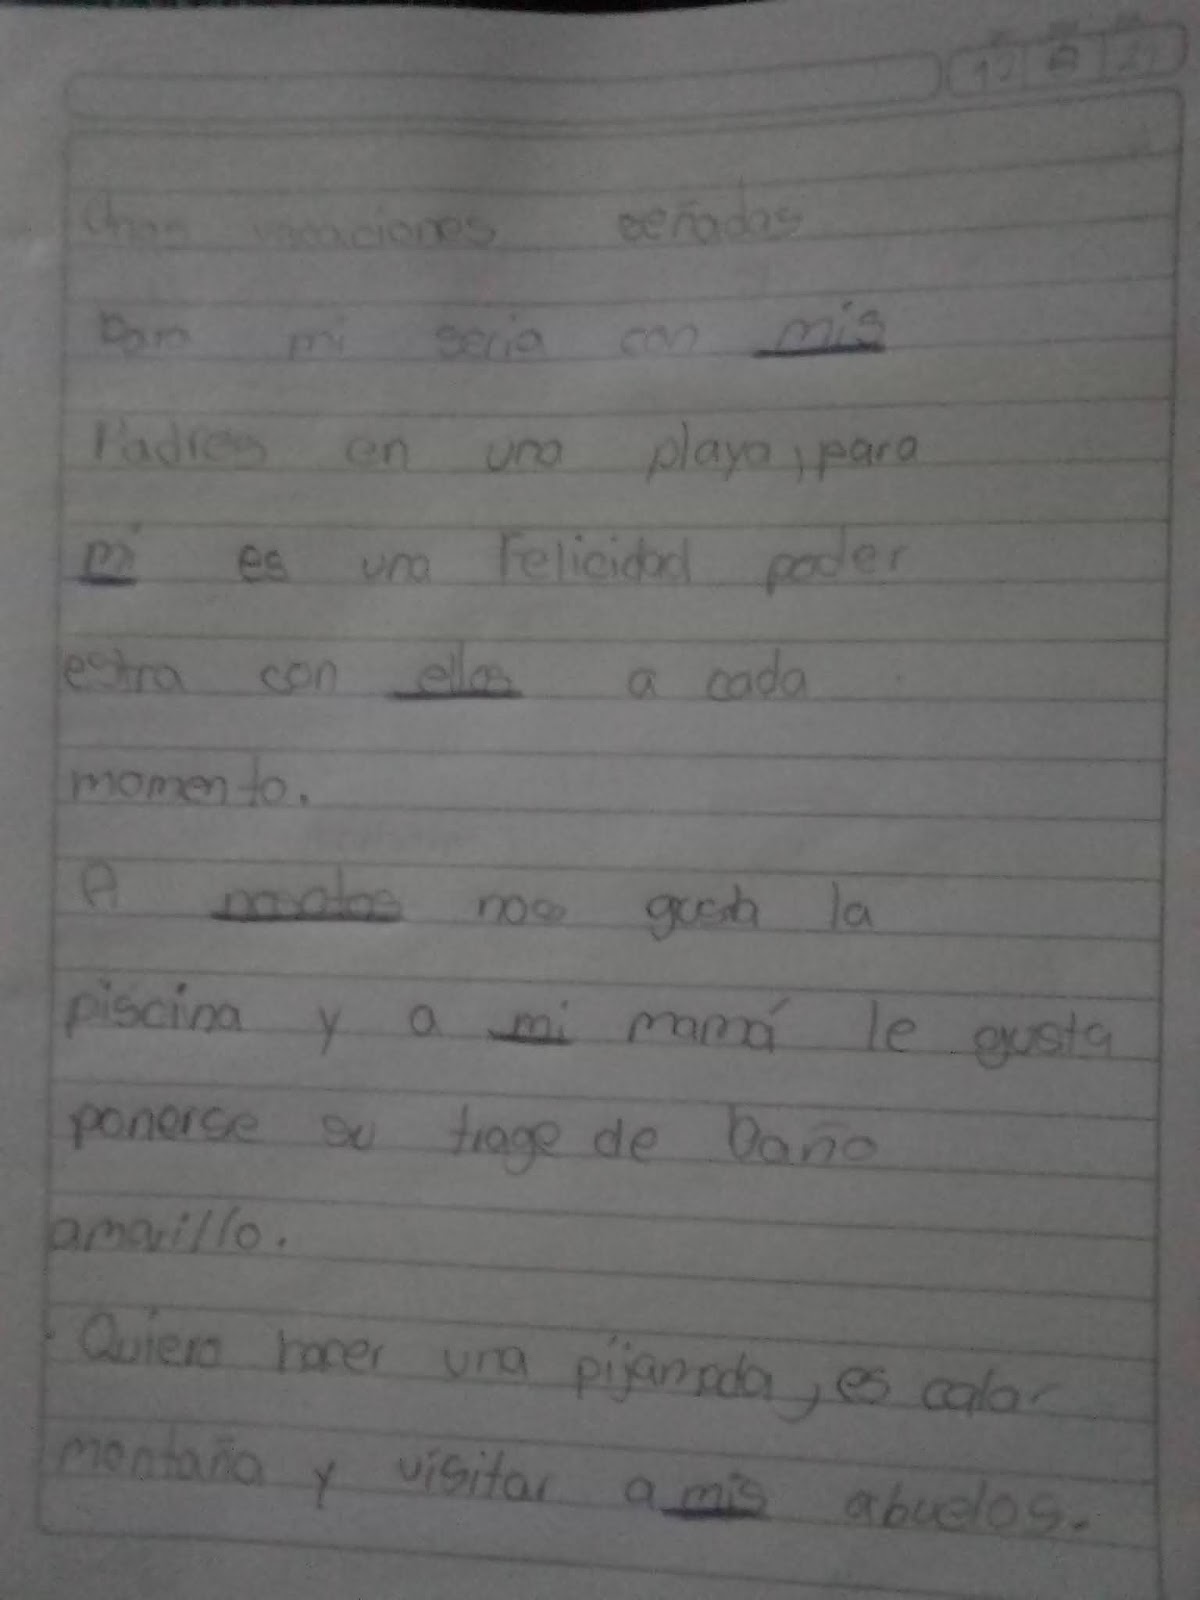 vacaciones señadas
Para mi seria con mis
Padres en una playa, para
mi es una Felicidad poder
estra con ellos a cada
momento.
A nosotos nos gusta la
piscina y a mi mamá le gusta
ponerse su trage de baño
amarillo.
Quiero hacer una pijamada, es calar
montaña y visitar a mis abuelos.